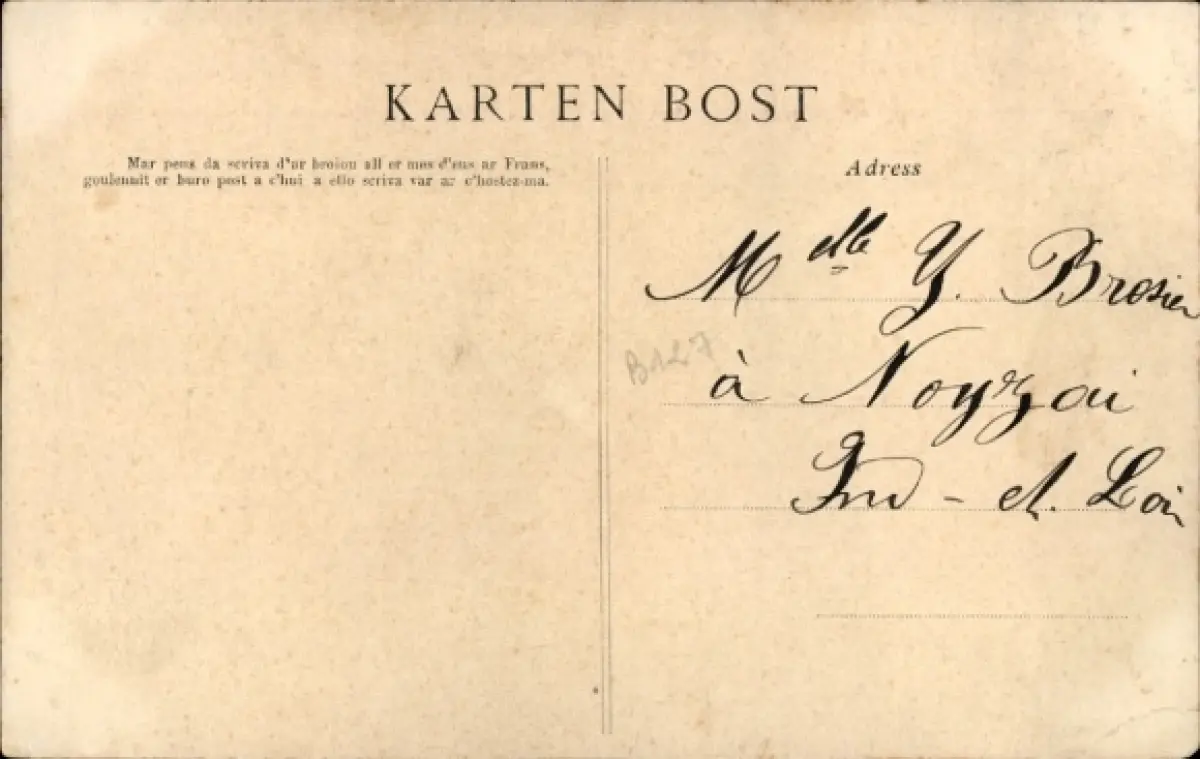 KARTEN BOST
Mar pens da scriva d'ar broiou all er mes d'eus ar Frans,
goulennit er buro post a c'hui a ello scriva var ar c'hostez-ma.
Adress
Melle Y. Brosier
B127
à Noyzai
Ind - et. Loir